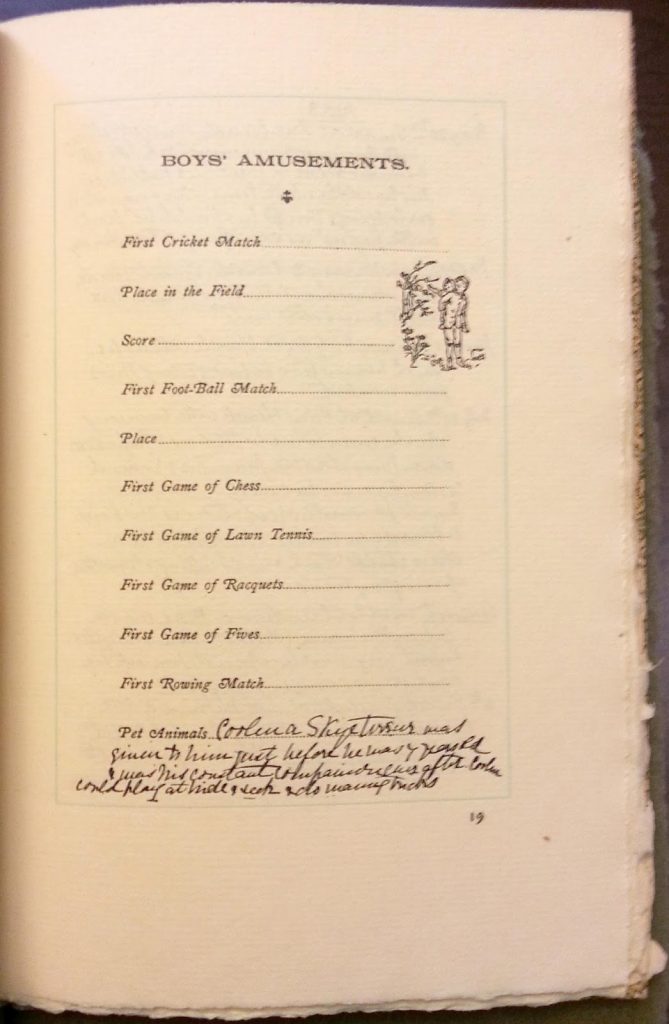 BOYS' AMUSEMENTS.
First Cricket Match
Place in the Field
Score
First Foot-Ball Match
Place
First Game of Chess
First Game of Lawn Tennis
First Game of Racquets
First Game of Fives
First Rowing Match
Pet Animals Coolin a Skye terrier was
given to him just before he was 7 years old
& was his constant companion ever after Coolin
could play at hide & seek & do many tricks
19